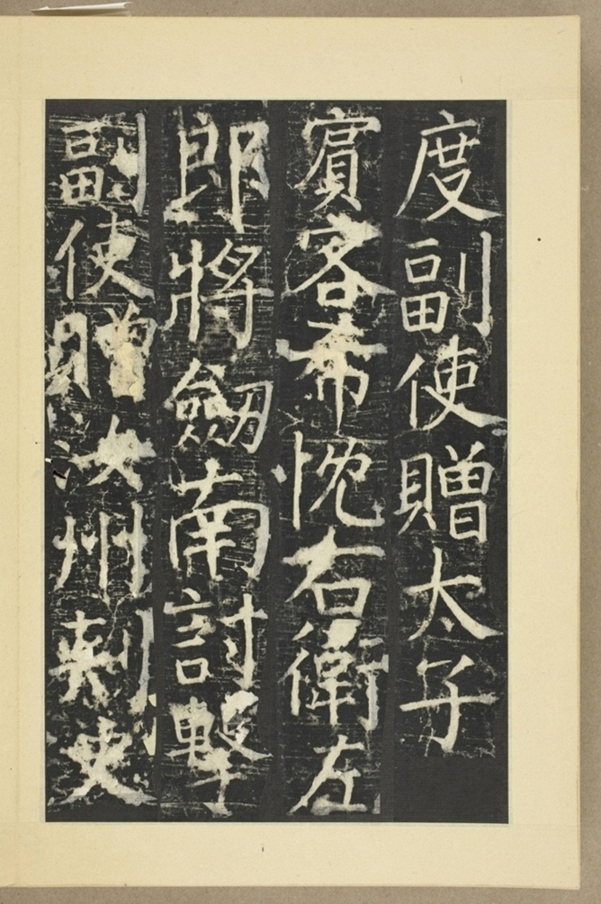 度副使贈太子
賔客希忱右衛左
郎將劒南討擊
副使贈汝州刺史